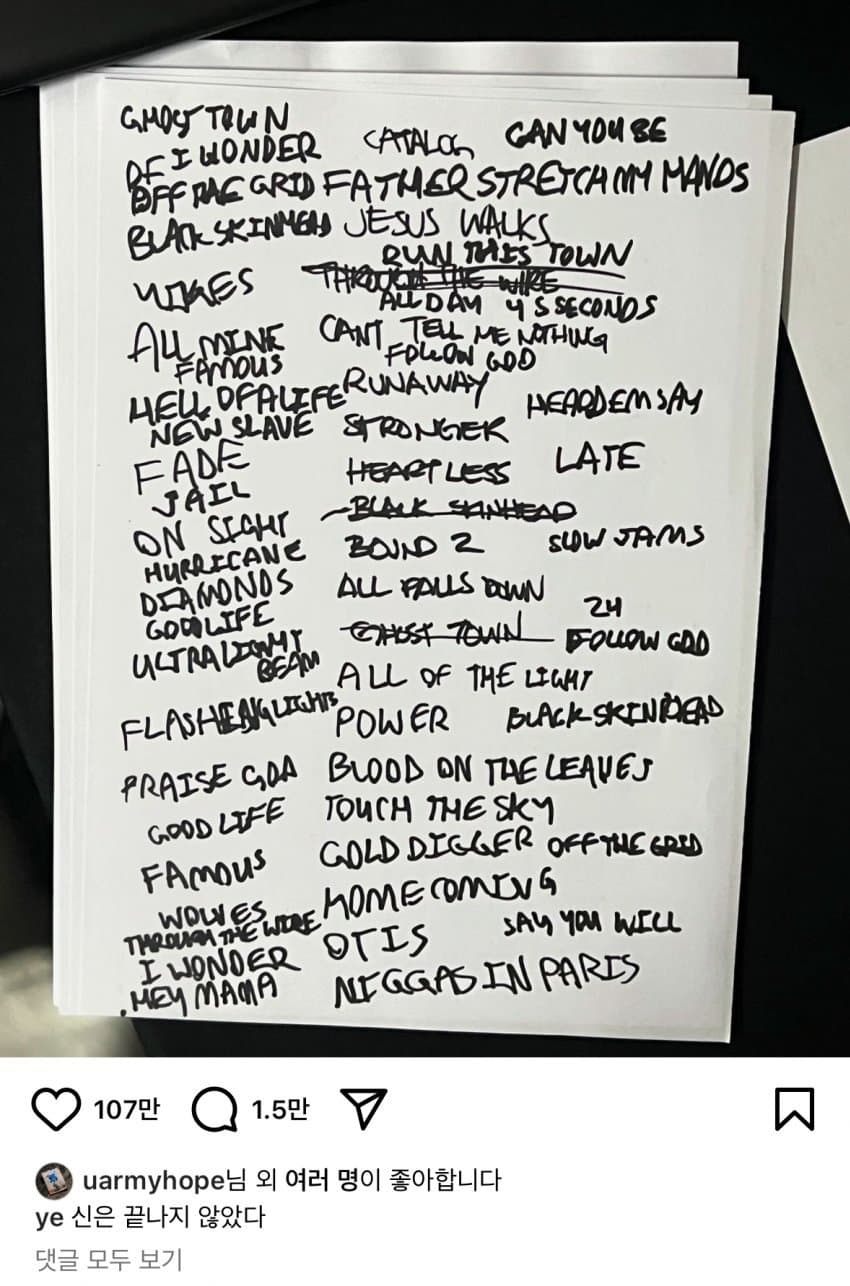 GHOST TOWN
CATALOG
CAN YOU BE
I WONDER
OFF THE GRID
FATHER STRETCH MY HANDS
BLACKSKINHEAD
JESUS WALKS
RUN THIS TOWN
YIKES
THROUGH THE WIRE
ALL DAY
4 5 SECONDS
ALL MINE
CANT TELL ME NOTHING
FAMOUS
FOLLOW GOD
HELL OF A LIFE
RUNAWAY
HEARD EM SAY
NEW SLAVE
STRONGER
FADE
HEARTLESS
LATE
JAIL
BLACK SKINHEAD
ON SIGHT
HURRICANE
BOUND 2
SLOW JAMS
DIAMONDS
ALL FALLS DOWN
GOODLIFE
24
GHOST TOWN
FOLLOW GOD
ULTRALIGHT
BEAM
ALL OF THE LIGHT
FLASHING LIGHTS
POWER
BLACKSKINHEAD
PRAISE GOD
BLOOD ON THE LEAVES
GOOD LIFE
TOUCH THE SKY
FAMOUS
GOLD DIGGER
OFF THE GRID
WOLVES
HOMECOMING
THROUGH THE WIRE
OTIS
SAY YOU WILL
I WONDER
HEY MAMA
NIGGAS IN PARIS
107만
1.5만
uarmyhope님 외 여러 명이 좋아합니다
ye 신은 끝나지 않았다
댓글 모두 보기